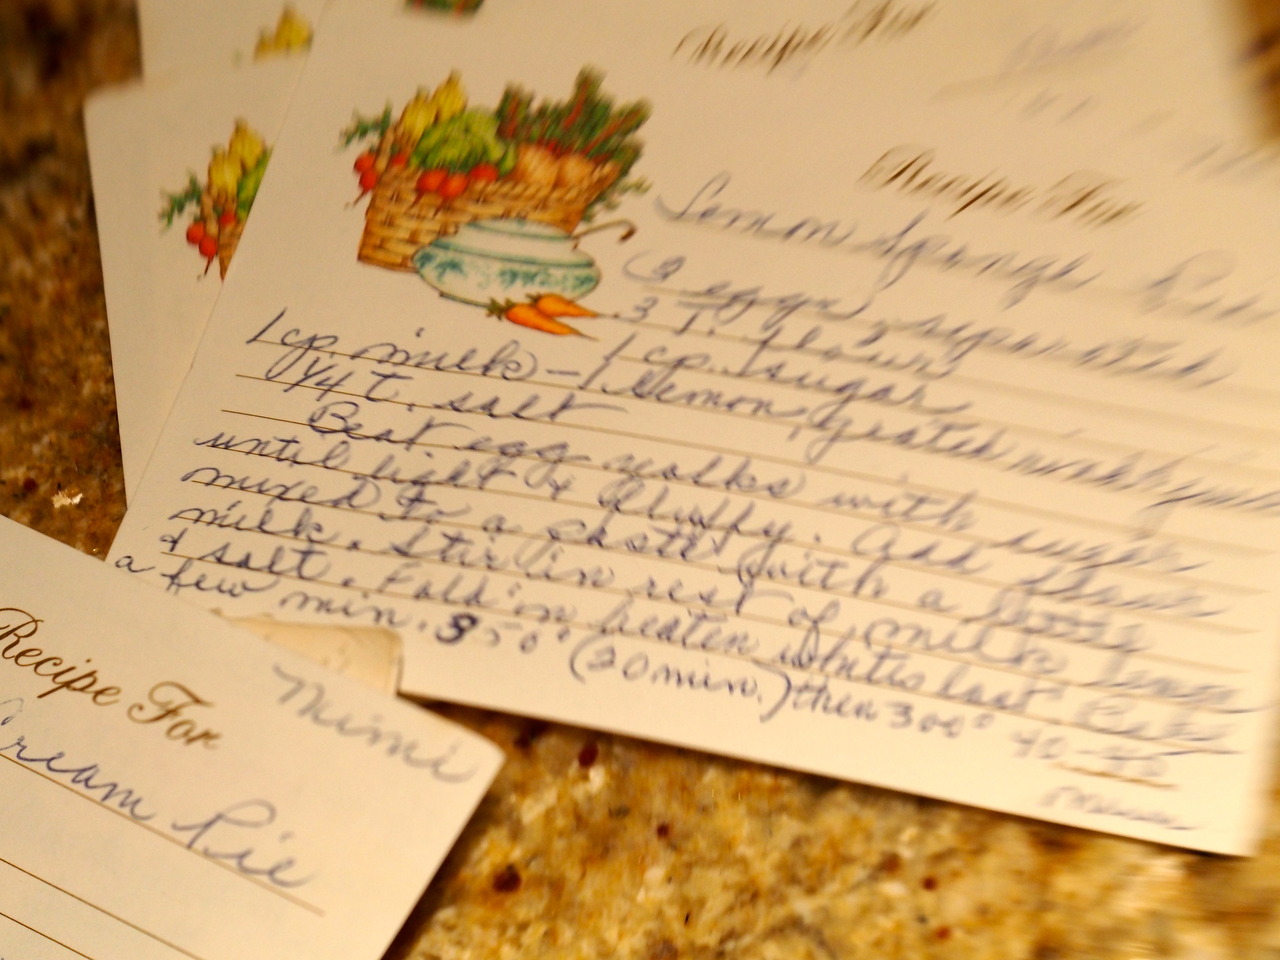 Recipe For
Recipe For
Lemon Sponge Pie
eggs, separated
3 T. flour
1 cp. sugar
1 cp. milk – 1 lemon, grated rind &
1/4 t. salt
Beat egg yolks with sugar
until light & fluffy. Add flour
mixed to a paste with a
milk. Stir in rest of milk, lemon
& salt. Fold in beaten whites last. Bake
a few min. 350° (20 min.) then 300°
Recipe For
Mimi
Cream Pie